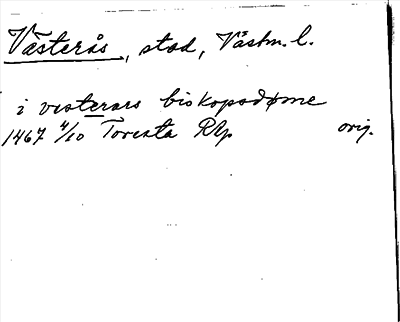 Västerås, stad, Västm. l.
i vesterars biskopsdøme
1467 4/10 Toresta RAp orig.